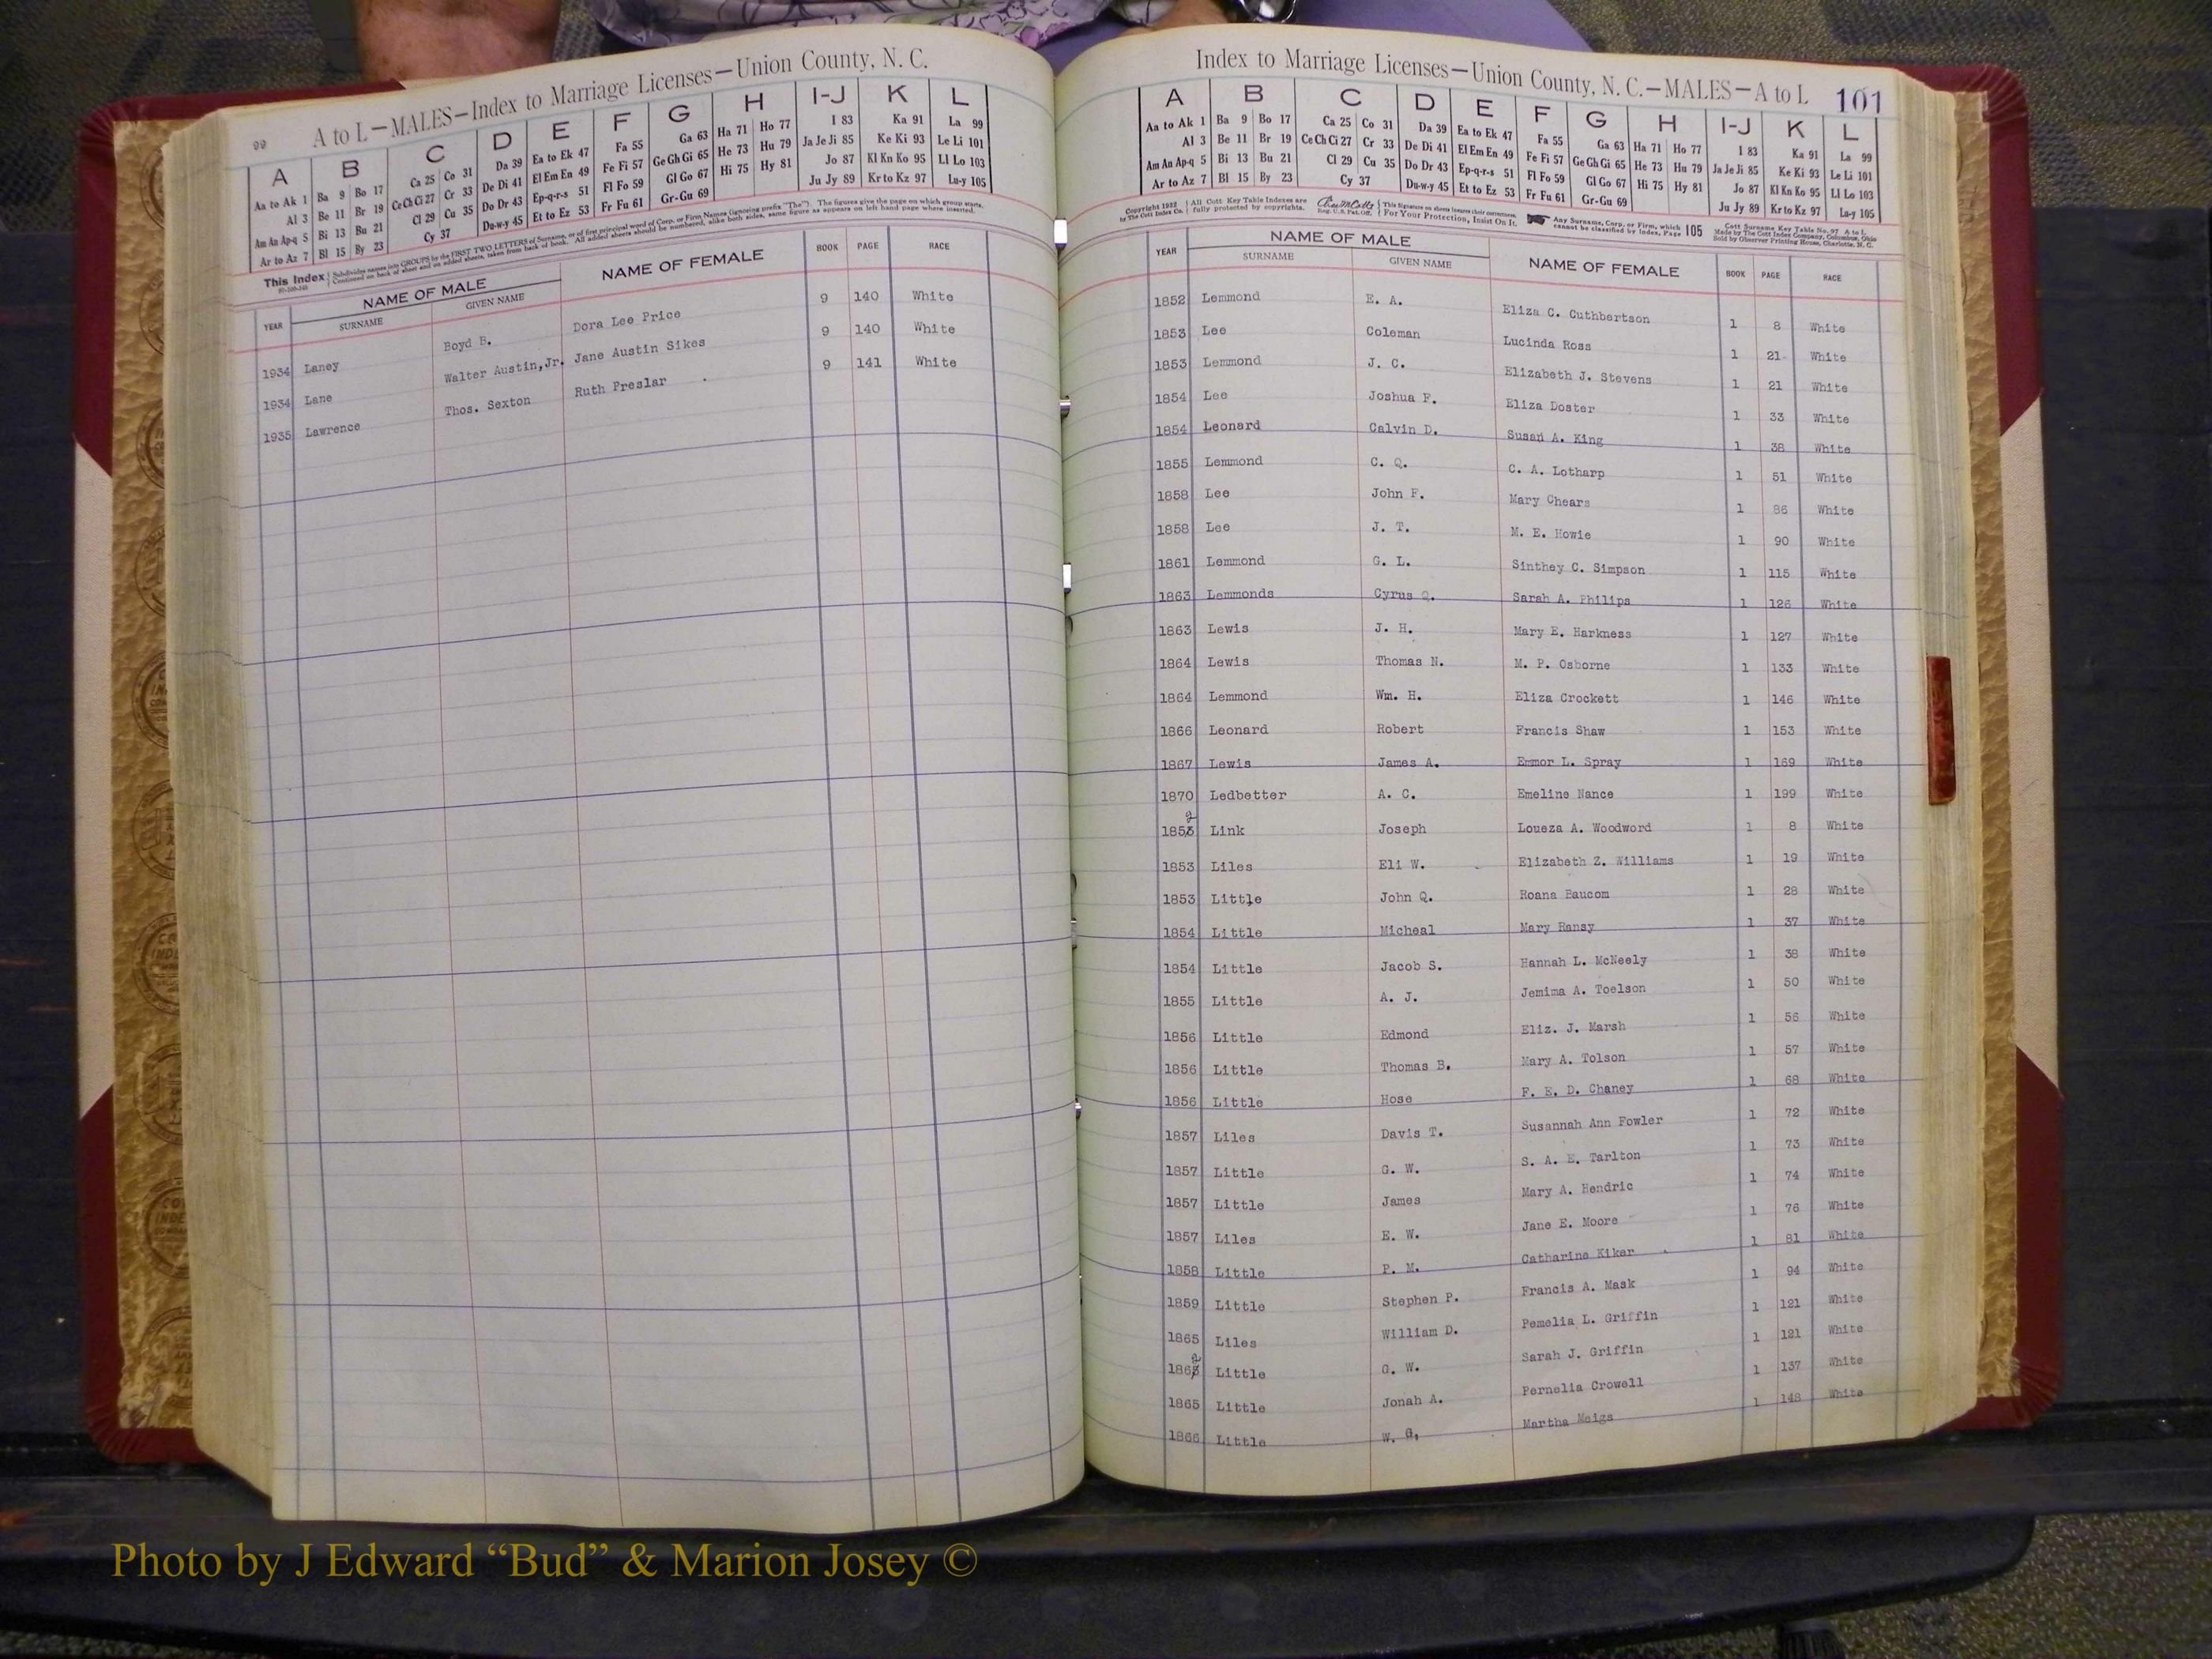 99 A to L—MALES—Index to Marriage Licenses—Union County, N. C.
A B C D E F G H I-J K L
Aa to Ak 1 Ba 9 Bo 17 Ca 25 Co 31 Da 39 Ea to Ek 47 Fa 55 Ga 63 Ha 71 Ho 77 I 83 Ka 91 La 99
Al 3 Be 11 Br 19 Ce Ch Ci 27 Cr 33 De Di 41 El Em En 49 Fe Fi 57 Ge Gh Gi 65 He 73 Hu 79 Ja Je Ji 85 Ke Ki 93 Le Li 101
Am An Ap-q 5 Bi 13 Bu 21 Cl 29 Cu 35 Do Dr 43 Ep-q-r-s 51 Fl Fo 59 Gl Go 67 Hi 75 Hy 81 Jo 87 Kl Kn Ko 95 Ll Lo 103
Ar to Az 7 Bl 15 By 23 Cy 37 Du-w-y 45 Et to Ez 53 Fr Fu 61 Gr-Gu 69 Ju Jy 89 Kr to Kz 97 Lu-y 105
This Index Subdivides names into GROUPS by the FIRST TWO LETTERS of Surname, or of first principal word of Corp. or Firm Names (ignoring prefix "The"). The figures give the page on which group starts.
Continued on back of sheet and on added sheets, taken from back of book. All added sheets should be numbered, alike both sides, same figure as appears on left hand page where inserted.
YEAR NAME OF MALE NAME OF FEMALE BOOK PAGE RACE
SURNAME GIVEN NAME
1934 Laney Boyd B. Dora Lee Price 9 140 White
1934 Lane Walter Austin,Jr. Jane Austin Sikes 9 140 White
1935 Lawrence Thos. Sexton Ruth Preslar 9 141 White
Index to Marriage Licenses—Union County, N. C.—MALES—A to L 101
A B C D E F G H I-J K L
Aa to Ak 1 Ba 9 Bo 17 Ca 25 Co 31 Da 39 Ea to Ek 47 Fa 55 Ga 63 Ha 71 Ho 77 I 83 Ka 91 La 99
Al 3 Be 11 Br 19 Ce Ch Ci 27 Cr 33 De Di 41 El Em En 49 Fe Fi 57 Ge Gh Gi 65 He 73 Hu 79 Ja Je Ji 85 Ke Ki 93 Le Li 101
Am An Ap-q 5 Bi 13 Bu 21 Cl 29 Cu 35 Do Dr 43 Ep-q-r-s 51 Fl Fo 59 Gl Go 67 Hi 75 Hy 81 Jo 87 Kl Kn Ko 95 Ll Lo 103
Ar to Az 7 Bl 15 By 23 Cy 37 Du-w-y 45 Et to Ez 53 Fr Fu 61 Gr-Gu 69 Ju Jy 89 Kr to Kz 97 Lu-y 105
Copyright 1922 All Cott Key Table Indexes are This Signature on sheets insures their correctness. Any Surname, Corp. or Firm, which Cott Surname Key Table No. 97 A to L
by The Cott Index Co. fully protected by copyrights. Reg. U. S. Pat. Off. For Your Protection, Insist On It. cannot be classified by Index, Page 105 Made by The Cott Index Company, Columbus, Ohio
Sold by Observer Printing House, Charlotte, N. C.
YEAR NAME OF MALE NAME OF FEMALE BOOK PAGE RACE
SURNAME GIVEN NAME
1852 Lemmond E. A. Eliza C. Cuthbertson 1 8 White
1853 Lee Coleman Lucinda Ross 1 21 White
1853 Lemmond J. C. Elizabeth J. Stevens 1 21 White
1854 Lee Joshua F. Eliza Doster 1 33 White
1854 Leonard Calvin D. Susan A. King 1 38 White
1855 Lemmond C. Q. C. A. Lotharp 1 51 White
1858 Lee John F. Mary Chears 1 86 White
1858 Lee J. T. M. E. Howie 1 90 White
1861 Lemmond G. L. Sinthey C. Simpson 1 115 White
1863 Lemmonds Cyrus Q. Sarah A. Philips 1 126 White
1863 Lewis J. H. Mary E. Harkness 1 127 White
1864 Lewis Thomas N. M. P. Osborne 1 133 White
1864 Lemmond Wm. H. Eliza Crockett 1 146 White
1866 Leonard Robert Francis Shaw 1 153 White
1867 Lewis James A. Emmor L. Spray 1 169 White
1870 Ledbetter A. C. Emeline Nance 1 199 White
2
1853 Link Joseph Loueza A. Woodword 1 8 White
1853 Liles Eli W. Elizabeth Z. Williams 1 19 White
1853 Little John Q. Roana Baucom 1 28 White
1854 Little Micheal Mary Hansy 1 37 White
1854 Little Jacob S. Hannah L. McNeely 1 38 White
1855 Little A. J. Jemima A. Toelson 1 50 White
1856 Little Edmond Eliz. J. Marsh 1 56 White
1856 Little Thomas B. Mary A. Tolson 1 57 White
1856 Little Hose F. E. D. Chaney 1 68 White
1857 Liles Davis T. Susannah Ann Fowler 1 72 White
1857 Little G. W. S. A. E. Tarlton 1 73 White
1857 Little James Mary A. Hendric 1 74 White
1857 Liles E. W. Jane E. Moore 1 76 White
1858 Little P. M. Catharine Kiker 1 81 White
1859 Little Stephen P. Francis A. Mask 1 94 White
1865 Liles William D. Pemelia L. Griffin 1 121 White
2
186 Little G. W. Sarah J. Griffin 1 121 White
1865 Little Jonah A. Pernelia Crowell 1 137 White
1866 Little W. G. Martha Meigs 1 148 White
Photo by J Edward “Bud” & Marion Josey ©